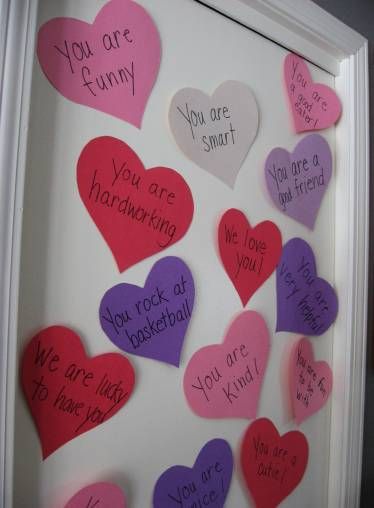 You are
funny
You are
smart
You are
a good
eater!
You are
hardworking
You are a
good friend
We love
you!
You rock at
basketball
You are
very helpful
We are lucky
to have you
You are
kind!
You are fun
to be
with
You are a
cutie!
You are